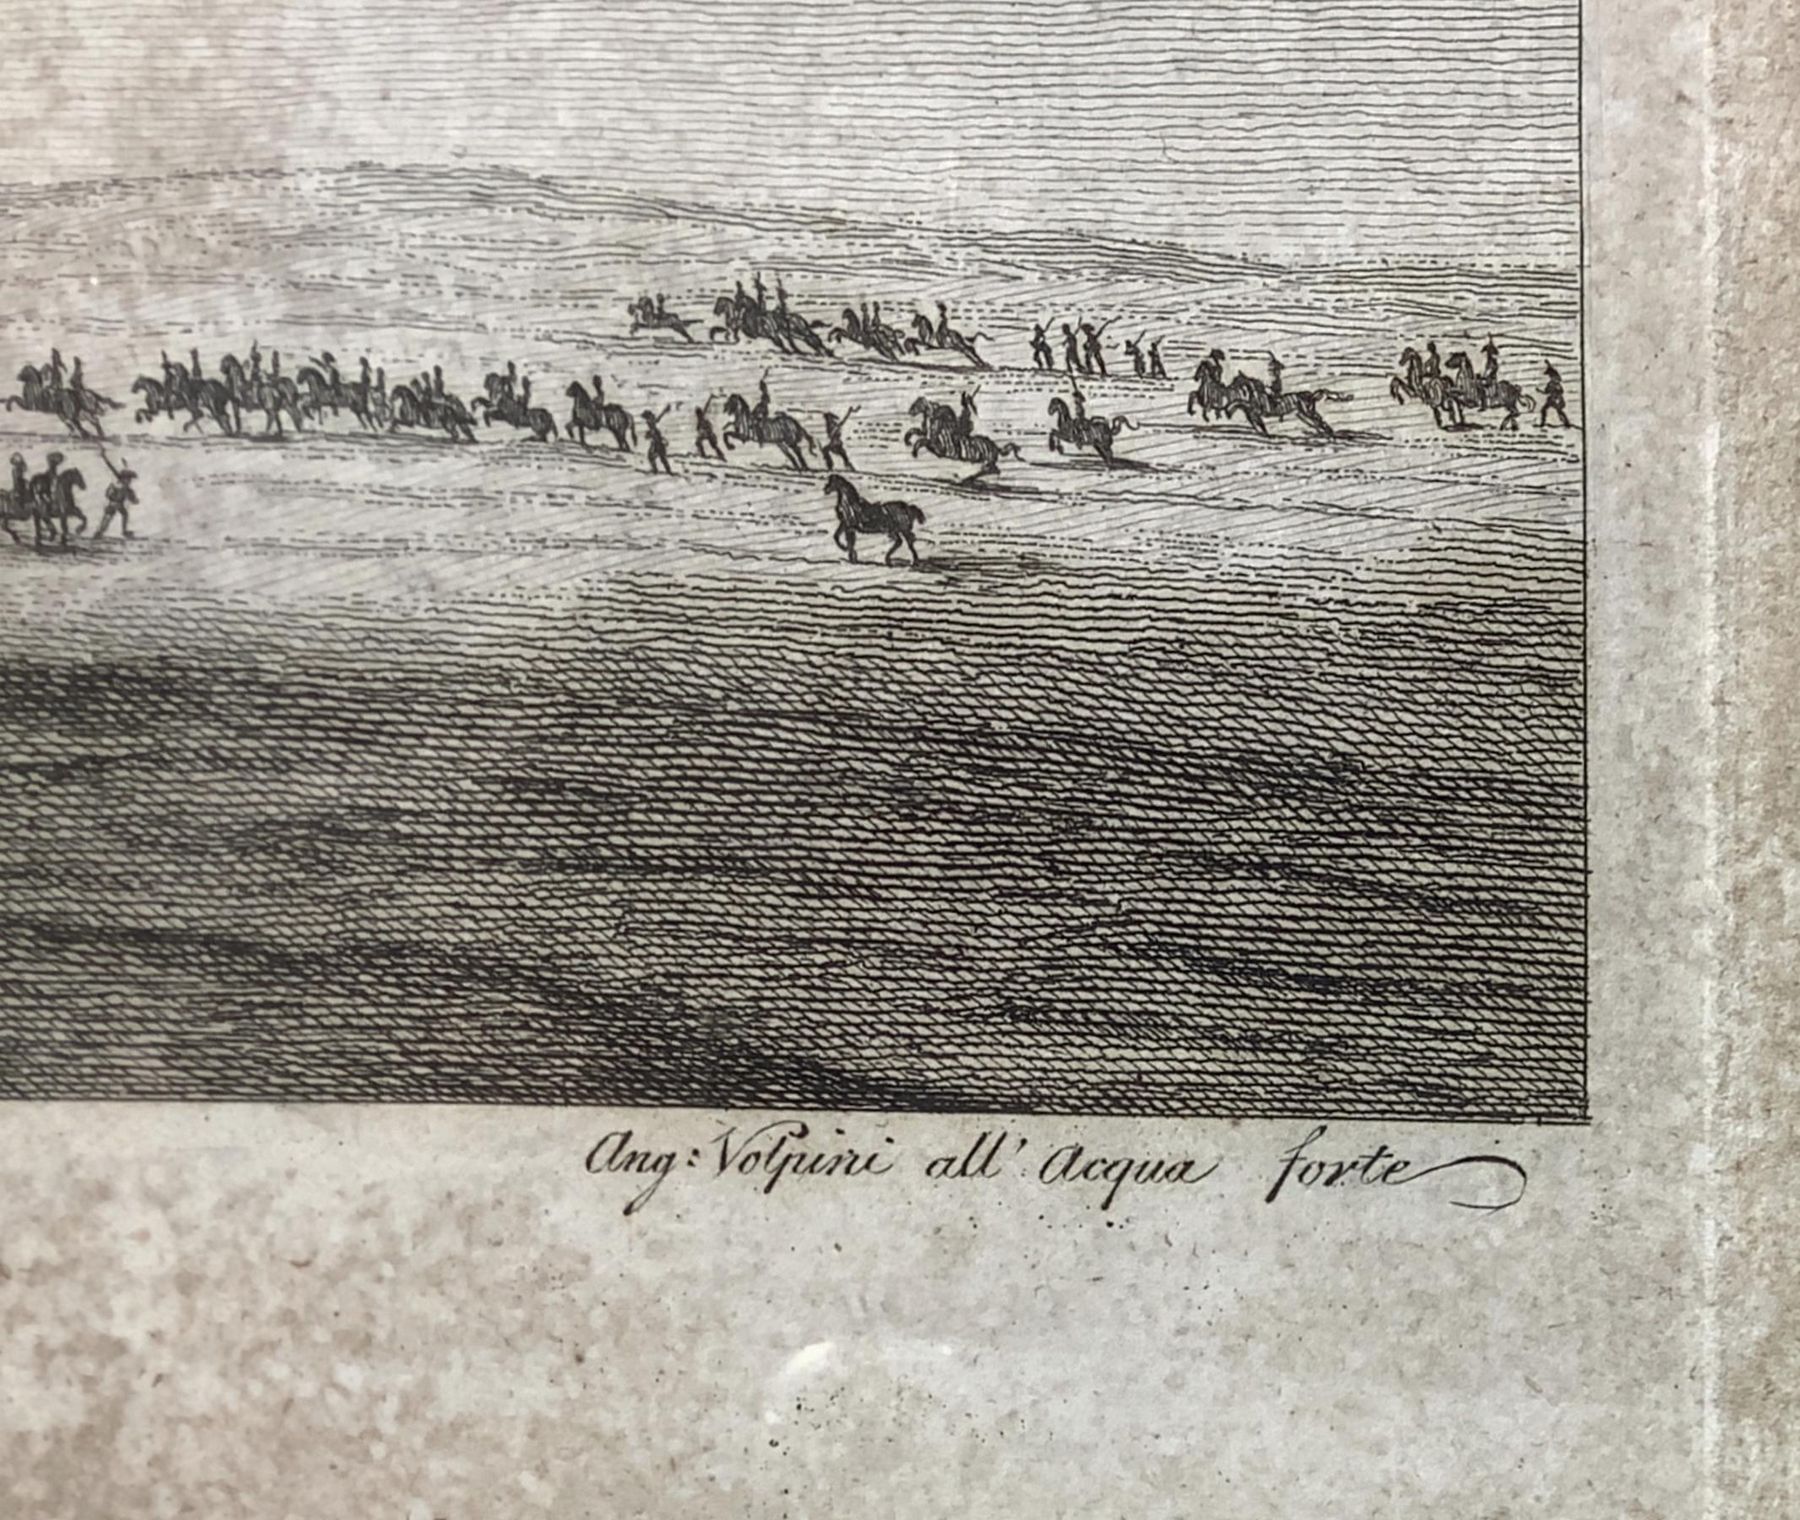 Ang: Volpini all' Acqua forte